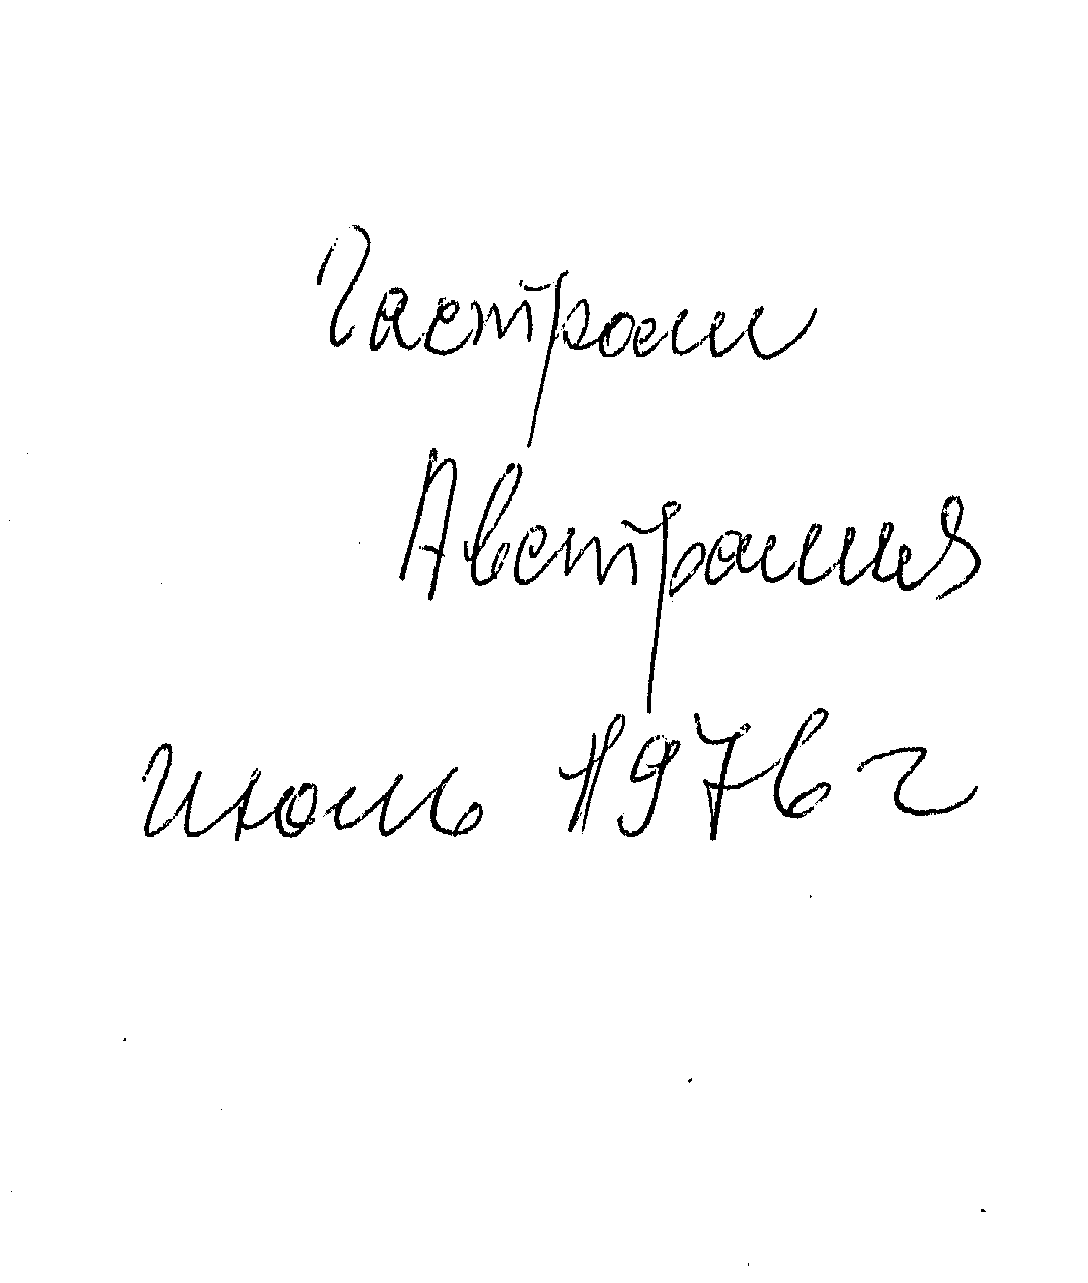 Гастроли
Австралия
Июль 1976 г